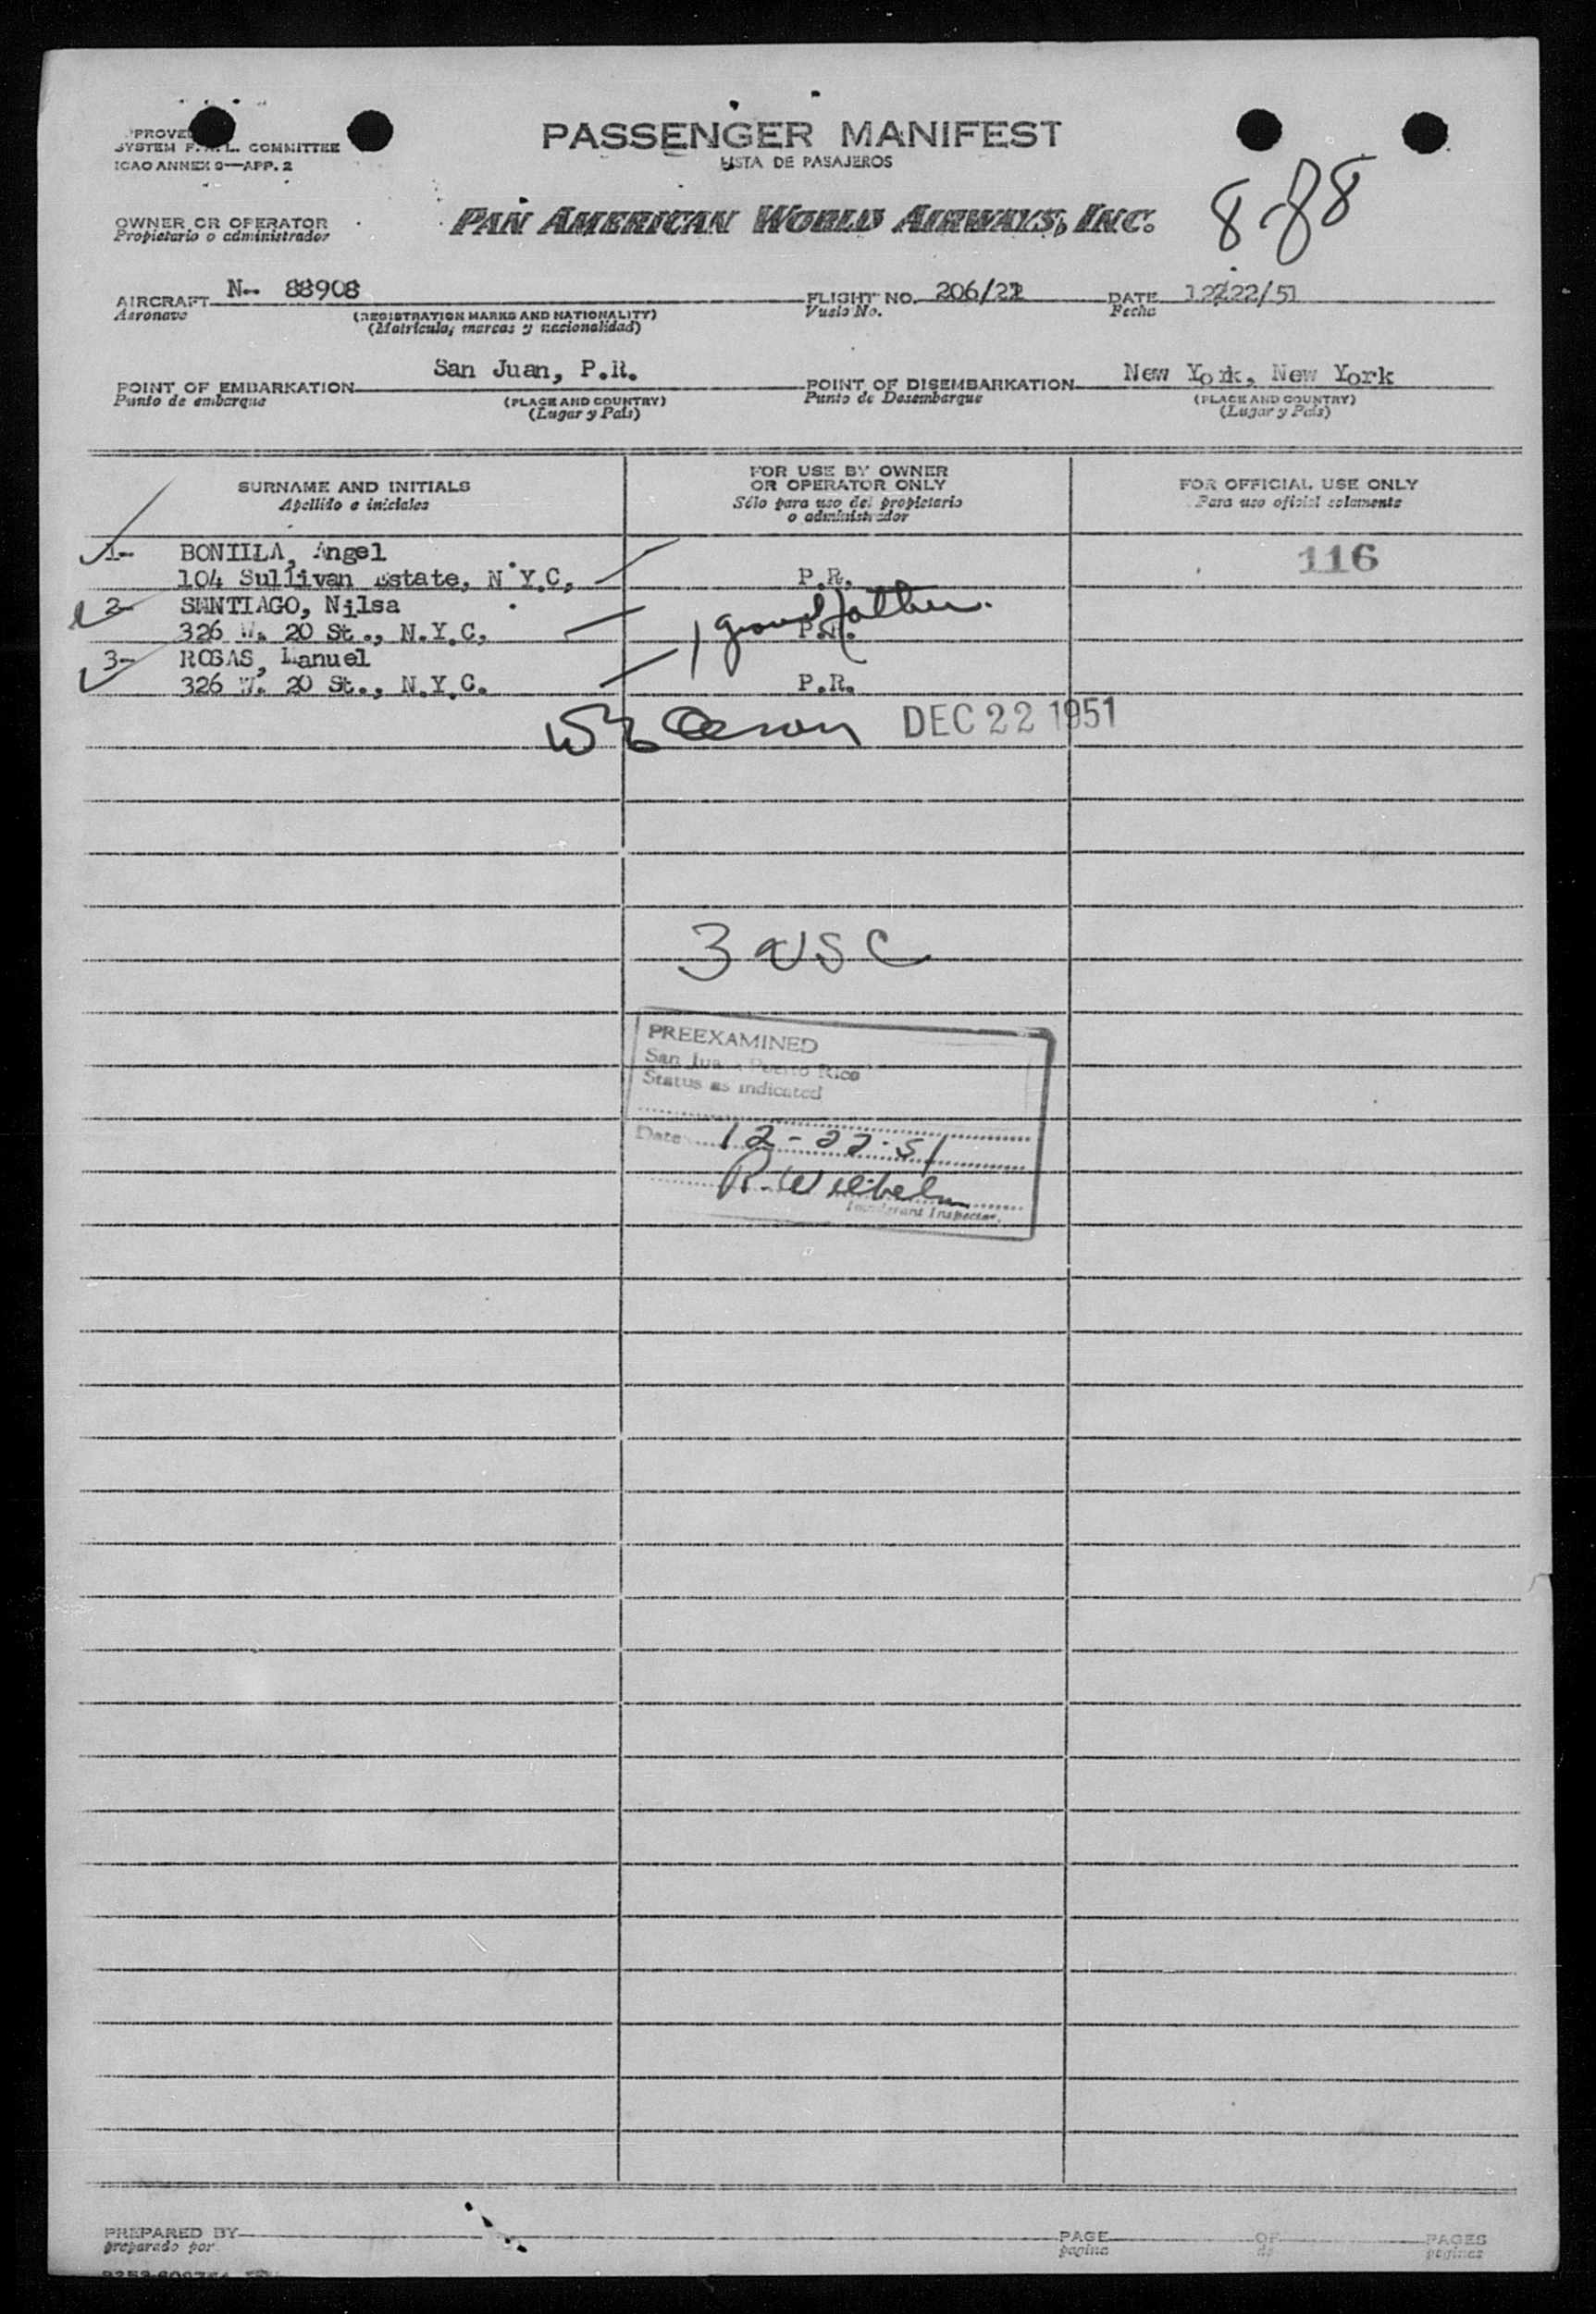 PASSENGER MANIFEST
LISTA DE PASAJEROS
SYSTEM F. A. L. COMMITTEE
ICAO ANNEX 9—APP. 2
8-88
OWNER OR OPERATOR
Propietario o administrador
PAN AMERICAN WORLD AIRWAYS, INC.
AIRCRAFT N-- 88908 FLIGHT NO. 206/22 DATE 12/22/51
Aeronave (REGISTRATION MARKS AND NATIONALITY) Vuelo No. Fecha
(Matricula, marcas y nacionalidad)
POINT OF EMBARKATION San Juan, P.R. POINT OF DISEMBARKATION New York, New York
Punto de embarque (PLACE AND COUNTRY) Punto de Desembarque (PLACE AND COUNTRY)
(Lugar y País) (Lugar y País)
SURNAME AND INITIALS FOR USE BY OWNER OR OPERATOR ONLY FOR OFFICIAL USE ONLY
Apellido e iniciales Sólo para uso del propietario o administrador Para uso oficial solamente
1- BONIILA, Angel 116
104 Sullivan Estate, N.Y.C, P.R.
2- SANTIAGO, Nilsa grandfather.
326 W. 20 St., N.Y.C, P.R.
3- ROSAS, Manuel
326 W. 20 St., N.Y.C. P.R.
DEC 22 1951
3 USC
PREEXAMINED
San Juan, Puerto Rico
Status as indicated
Date 12-22-51
R. Wilhelm
Immigrant Inspector.
PREPARED BY PAGE OF PAGES
preparado por pagina de paginas